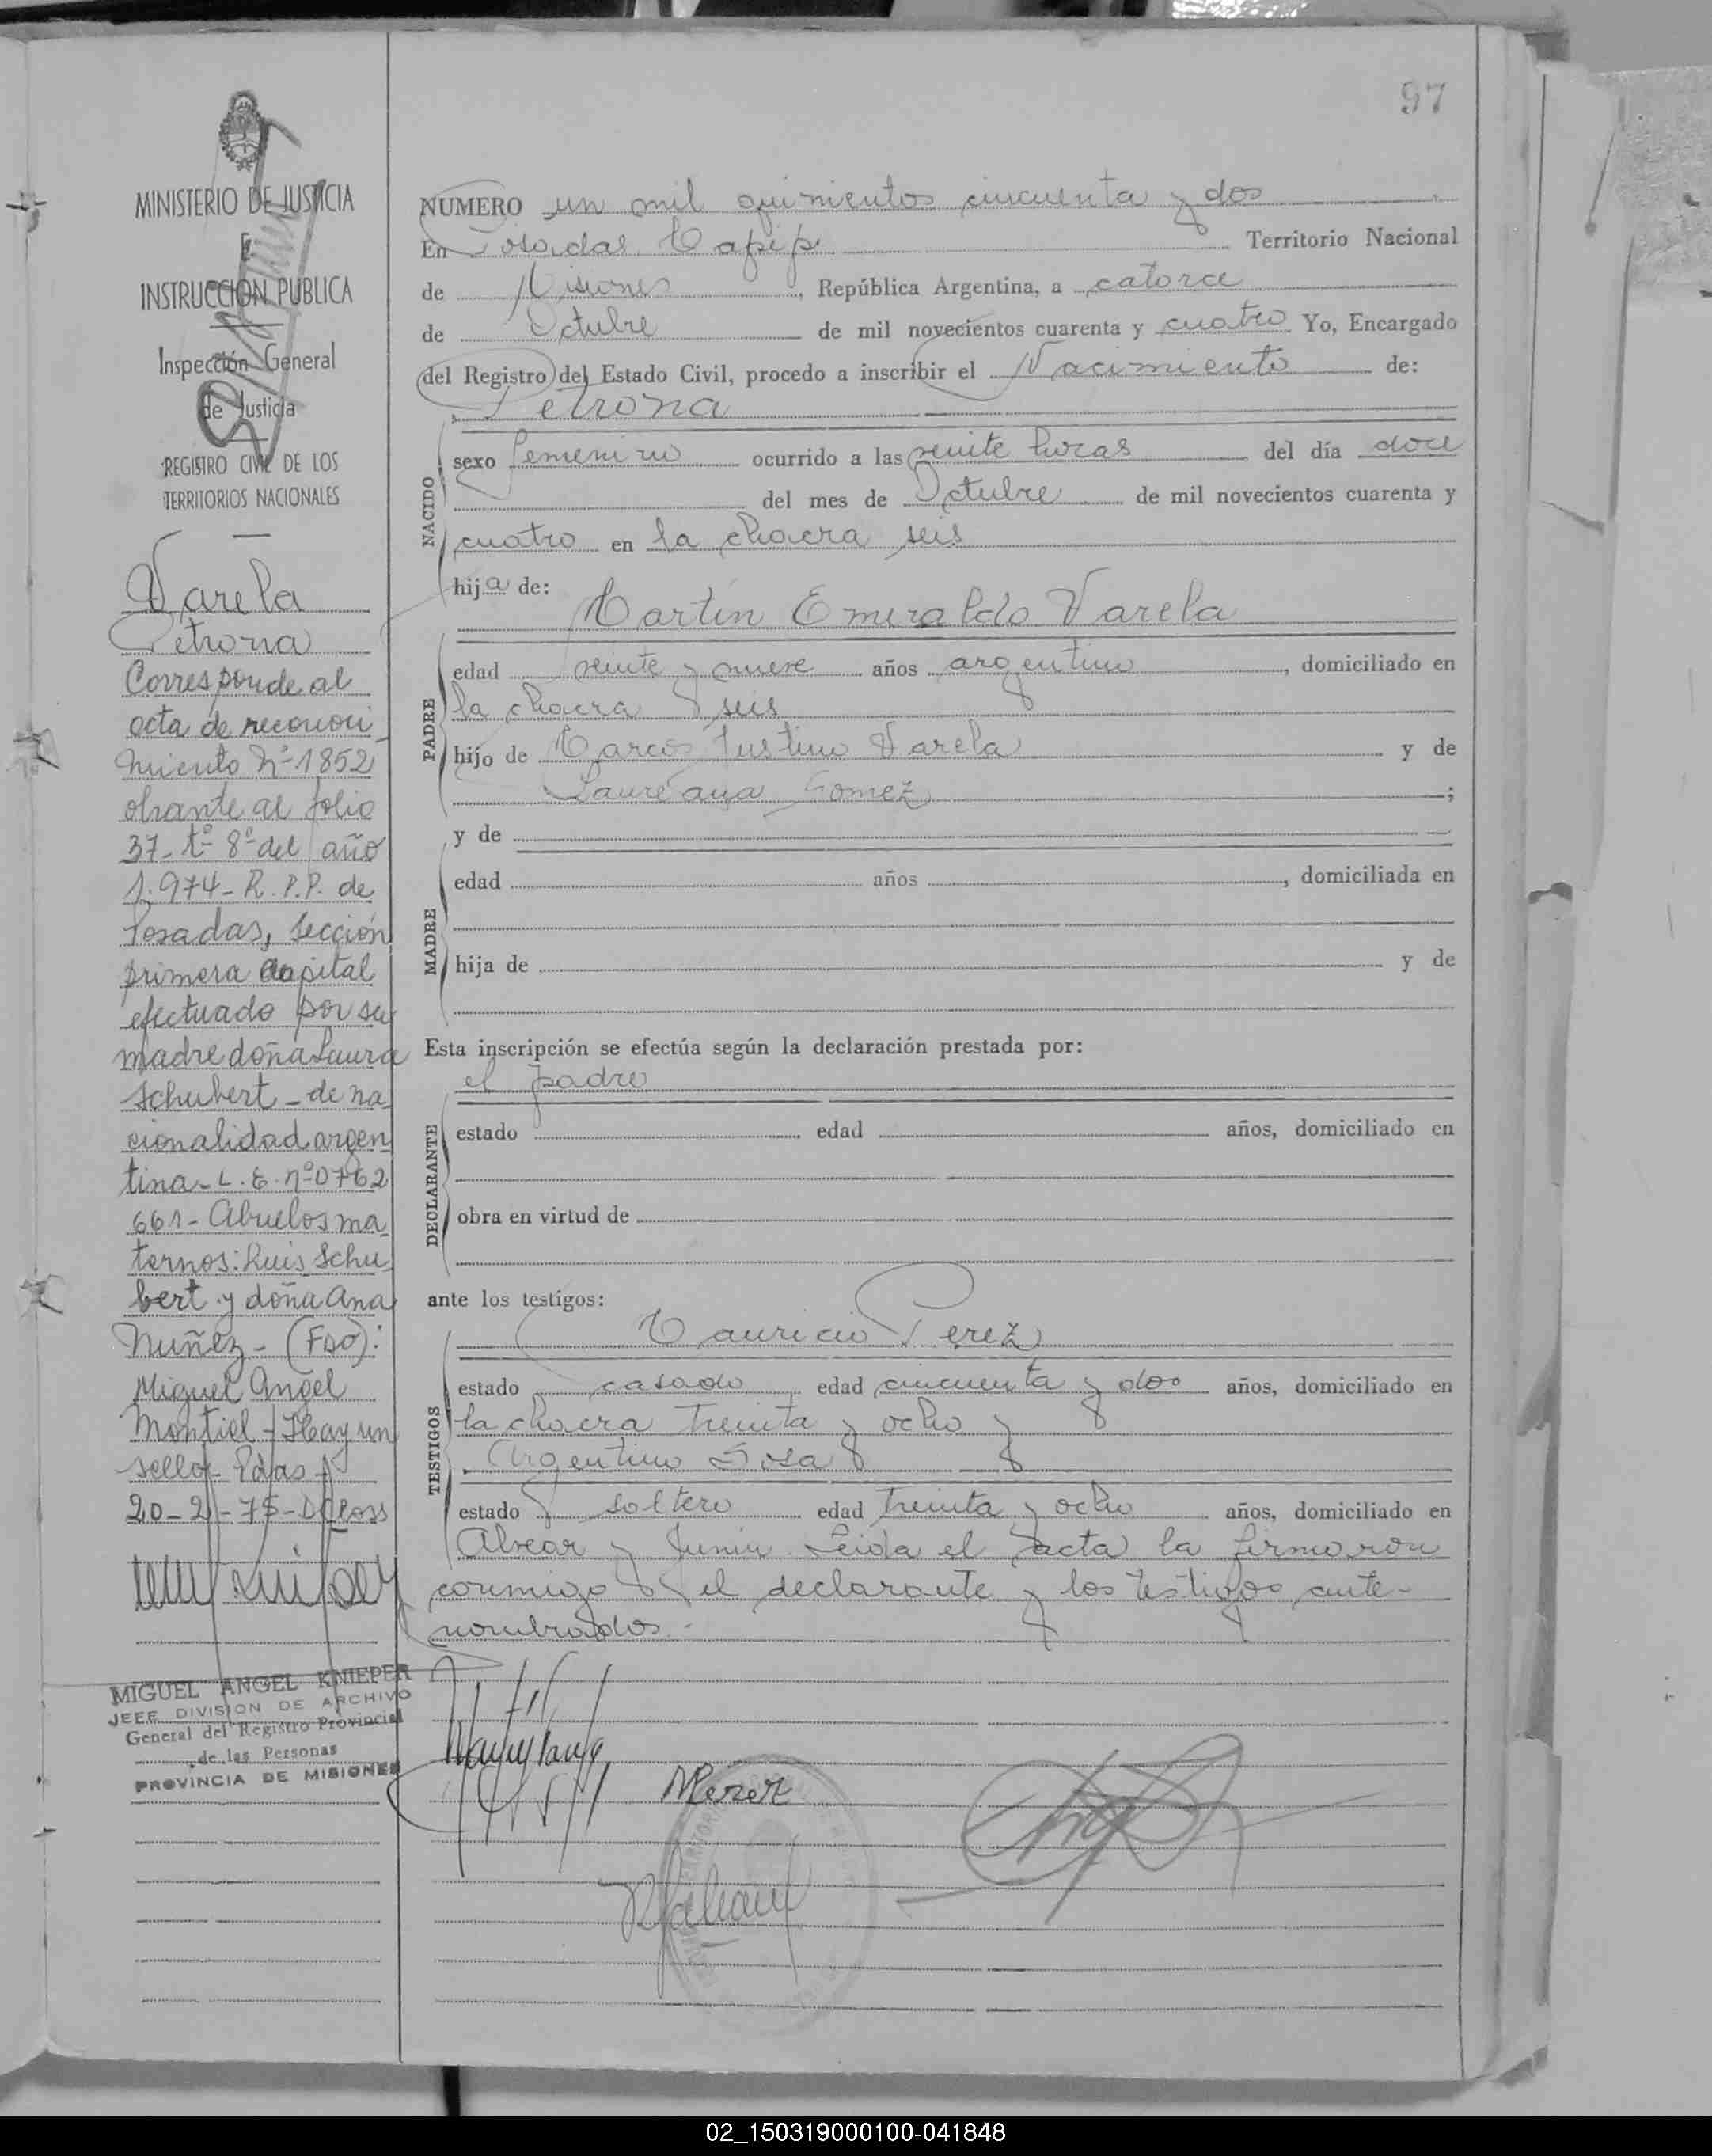 97
MINISTERIO DE JUSTICIA
E
INSTRUCCION PUBLICA
Inspección General
de Justicia
REGISTRO CIVIL DE LOS
TERRITORIOS NACIONALES
Varela
Petrona
Corresponde al
acta de reconoci
miento Nº 1852
obrante al folio
37- tº 8º del año
1.974- R.P.P. de
Posadas, sección
primera capital
efectuado por su
madre doña Laura
Schubert - de na
cionalidad argen
tina - L.E. nº 0762
661- Abuelos ma
ternos: Luis Schu
bert y doña Ana
Nuñez - (Fdo):
Miguel Angel
Montiel - Hay un
sello - Pdas
20-2-75-
MIGUEL ANGEL KNIEPER
JEFE DIVISION DE ARCHIVO
General del Registro Provincial
de las Personas
PROVINCIA DE MISIONES
NUMERO un mil quinientos cincuenta y dos
En Posadas Territorio Nacional
de Misiones, República Argentina, a catorce
de Octubre de mil novecientos cuarenta y cuatro Yo, Encargado
del Registro del Estado Civil, procedo a inscribir el Nacimiento de:
Petrona
NACIDO
sexo femenino ocurrido a las veinte horas del día doce
del mes de Octubre de mil novecientos cuarenta y
cuatro en la chacra seis
hija de:
Martín Emeraldo Varela
PADRE
edad veinte y nueve años argentino, domiciliado en
la chacra seis
hijo de Marcos Justino Varela y de
Laureana Gomez;
y de
MADRE
edad años, domiciliada en
hija de y de
Esta inscripción se efectúa según la declaración prestada por:
el padre
DECLARANTE
estado edad años, domiciliado en
obra en virtud de
ante los testigos:
Mauricio Perez
TESTIGOS
estado casado edad cincuenta y dos años, domiciliado en
la chacra treinta y ocho y
Argentino Sosa
estado soltero edad treinta y ocho años, domiciliado en
Alvear y Junin. Leida el acta la firmaron
conmigo el declarante y los testigos ante-
nombrados.-
MPerez
02_150319000100-041848